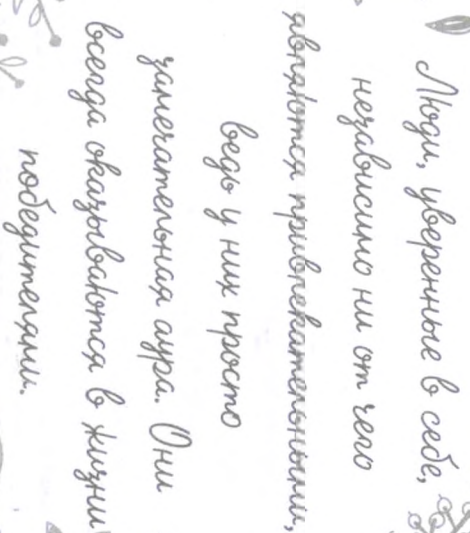 Люди, уверенные в себе,
независимо ни от чего
являются привлекательными,
ведь у них просто
замечательная аура. Они
всегда оказываются в жизни
победителями.